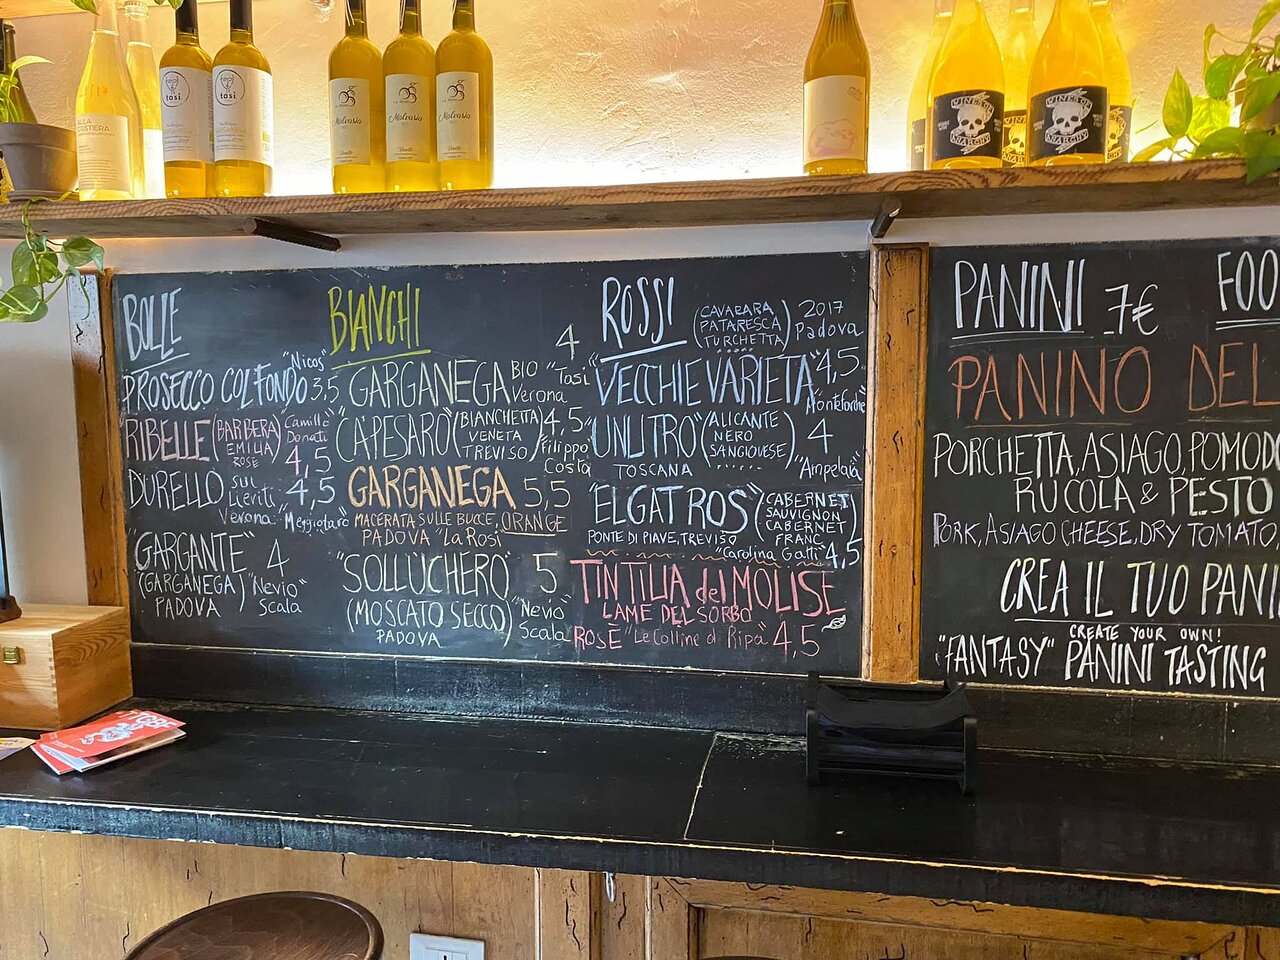 BOLLE
"Nicos"
PROSECCO COL FONDO 3,5
"RIBELLE" (BARBERA) Camillo
EMILIA Donati
ROSÉ 4,5
DURELLO SUI 4,5
Lieviti
Verona "Meggiolaro"
"GARGANTE" 4
(GARGANEGA) "Nevio
PADOVA Scala
BIANCHI
4
GARGANEGA BIO "Tasi"
Verona
"CA'PESARO" (BIANCHETTA) 4,5
VENETA Filippo
TREVISO Costa
GARGANEGA 5,5
MACERATA SULLE BUCCE, ORANGE
PADOVA "La Rosi"
"SOLLUCHERO" 5
(MOSCATO SECCO) "Nevio
PADOVA Scala
ROSSI
(CAVARARA 2017
PATARESCA Padova
TURCHETTA)
"VECCHIE VARIETA" 4,5
Monteforche
"UNLITRO" (ALICANTE 4
NERO
SANGIOVESE)
TOSCANA "Ampelaia
"EL GAT ROS" (CABERNET
SAUVIGNON
CABERNET
FRANC)
PONTE DI PIAVE, TREVISO
"Carolina Gatti" 4,5
TINTILIA del MOLISE
LAME DEL SORBO
ROSÉ "Le Colline d Ripa" 4,5
PANINI 7€
FOO
PANINO DEL
PORCHETTA, ASIAGO, POMOD
RUCOLA & PESTO
PORK, ASIAGO CHEESE, DRY TOMATO,
CREA IL TUO PANI
CREATE YOUR OWN!
"FANTASY" PANINI TASTING
tasi
tasi
Malvasia
Malvasia
Malvasia
WINES OF
ANARCHY
WINES OF
ANARCHY